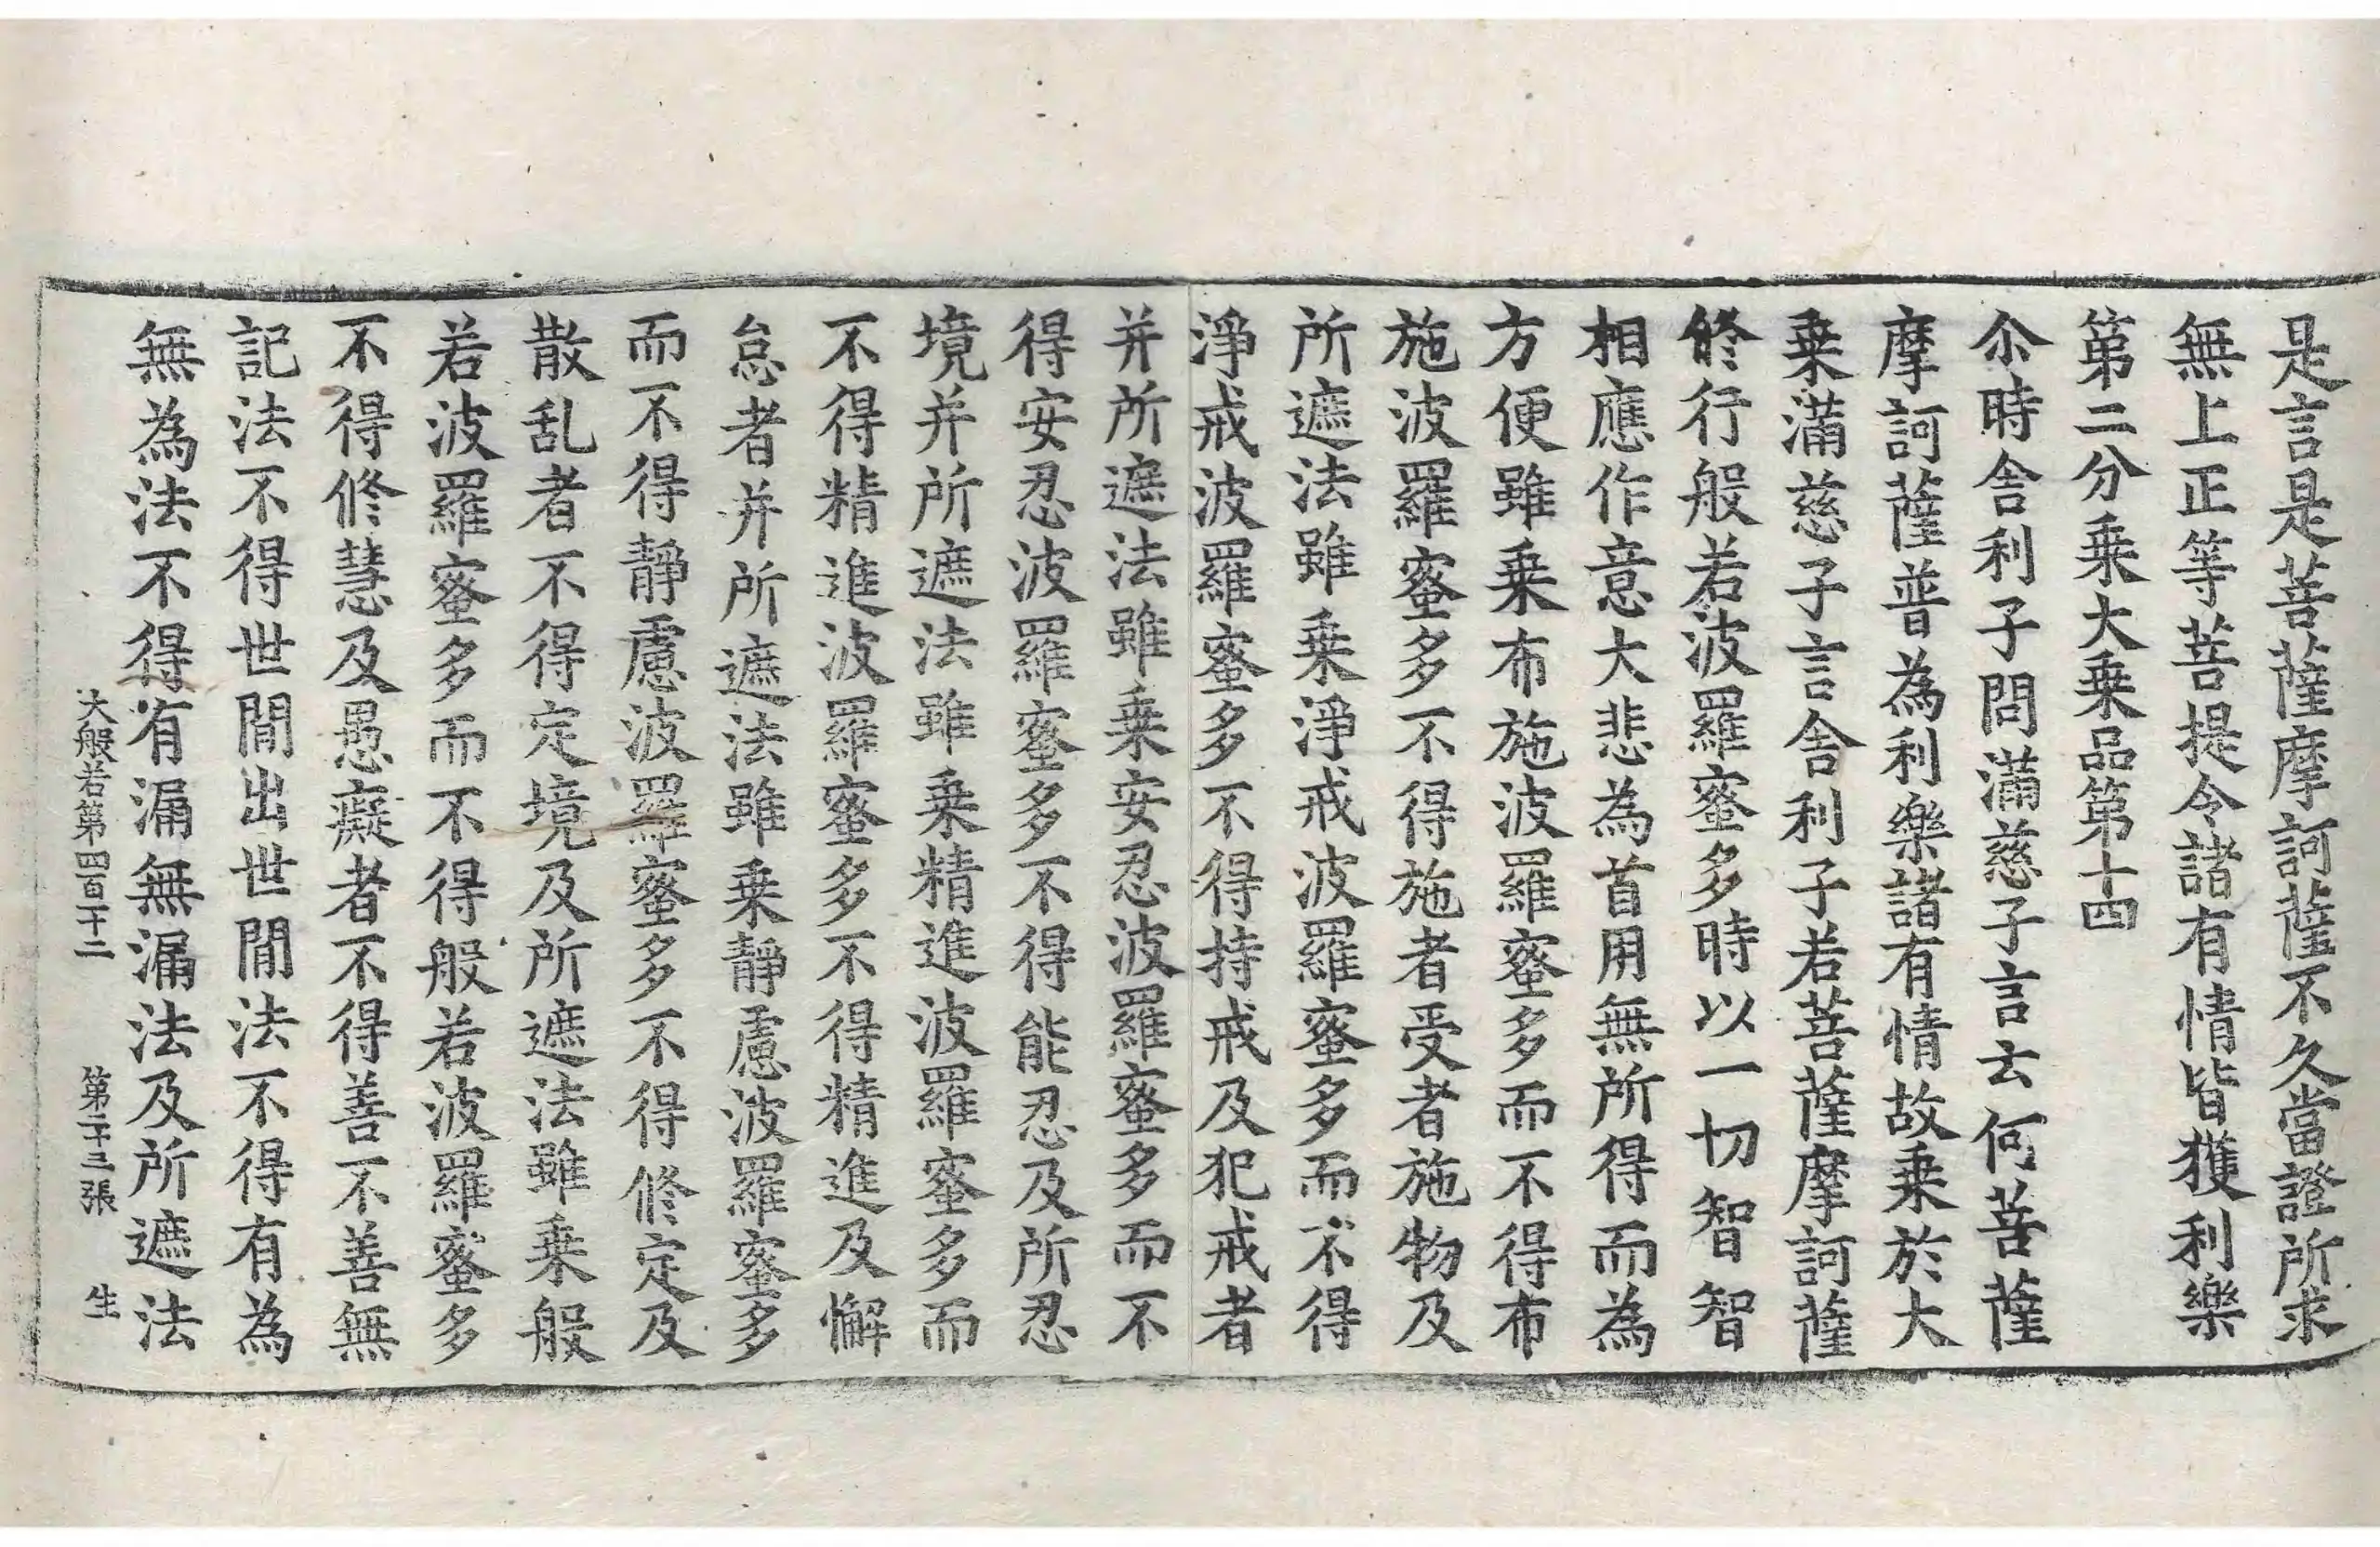 是言是菩薩摩訶薩不久當證所求
無上正等菩提令諸有情皆獲利樂
第二分乗大乗品第十四
尒時舍利子問滿慈子言云何菩薩
摩訶薩普為利樂諸有情故乗於大
乗滿慈子言舍利子若菩薩摩訶薩
修行般若波羅蜜多時以一切智智
相應作意大悲為首用無所得而為
方便雖乗布施波羅蜜多而不得布
施波羅蜜多不得施者受者施物及
所遮法雖乗淨戒波羅蜜多而不得
淨戒波羅蜜多不得持戒及犯戒者
并所遮法雖乗安忍波羅蜜多而不
得安忍波羅蜜多不得能忍及所忍
境并所遮法雖乗精進波羅蜜多而
不得精進波羅蜜多不得精進及懈
怠者并所遮法雖乗靜慮波羅蜜多
而不得靜慮波羅蜜多不得修定及
散乱者不得定境及所遮法雖乗般
若波羅蜜多而不得般若波羅蜜多
不得修慧及愚癡者不得善不善無
記法不得世間出世間法不得有為
無為法不得有漏無漏法及所遮法
大般若第四百十二 第二十三張 生